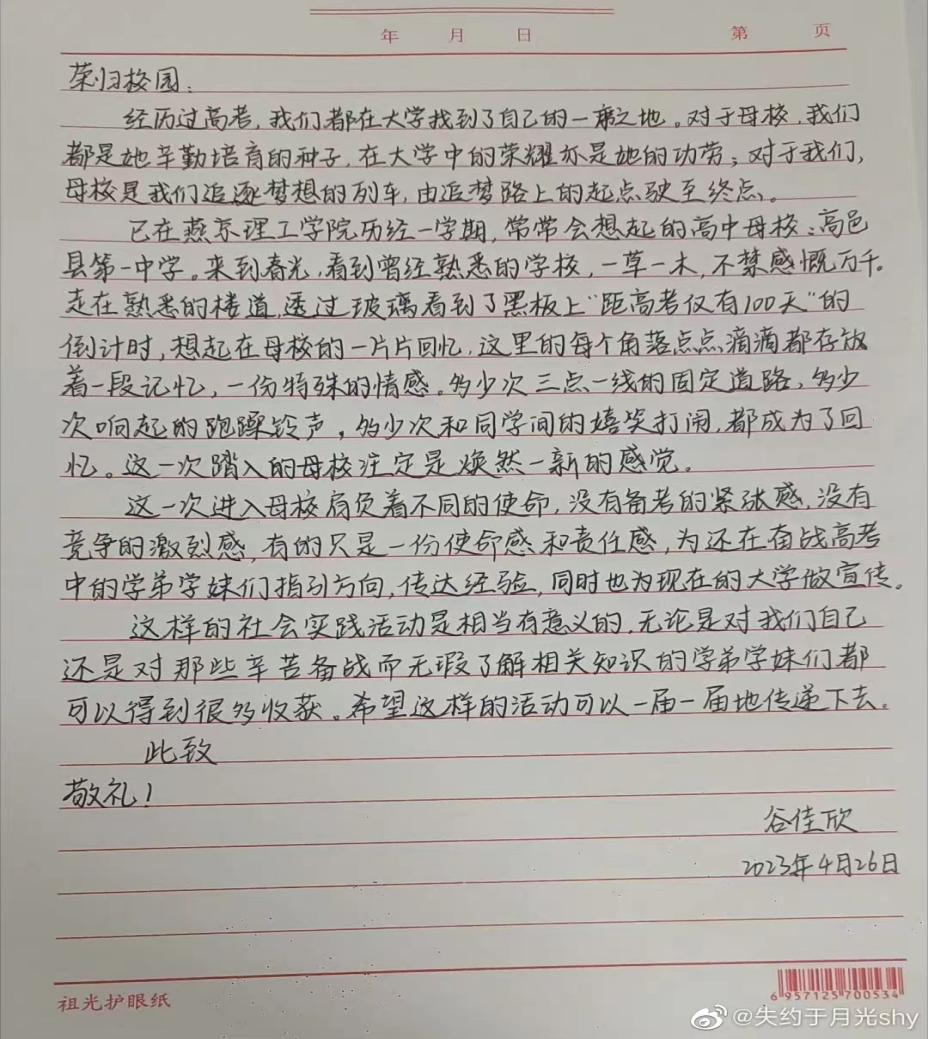 年 月 日 第 页
荣归校园:
经历过高考,我们都在大学找到了自己的一席之地。对于母校,我们
都是她辛勤培育的种子,在大学中的荣耀亦是她的功劳;对于我们,
母校是我们追逐梦想的列车,由追梦路上的起点驶至终点。
已在燕京理工学院历经一学期,常常会想起的高中母校:高邑
县第一中学。来到春光,看到曾经熟悉的学校,一草一木,不禁感慨万千。
走在熟悉的楼道,透过玻璃看到了黑板上“距高考仅有100天”的
倒计时,想起在母校的一片片回忆,这里的每个角落点点滴滴都存放
着一段记忆,一份特殊的情感。多少次三点一线的固定道路,多少
次响起的跑躁铃声,多少次和同学间的嬉笑打闹,都成为了回
忆。这一次踏入的母校注定是焕然一新的感觉。
这一次进入母校肩负着不同的使命,没有备考的紧张感,没有
竞争的激烈感,有的只是一份使命感和责任感,为还在奋战高考
中的学弟学妹们指引方向,传达经验,同时也为现在的大学做宣传。
这样的社会实践活动是相当有意义的,无论是对我们自己
还是对那些辛苦备战而无瑕了解相关知识的学弟学妹们都
可以得到很多收获。希望这样的活动可以一届一届地传递下去。
此致
敬礼!
谷佳欣
2023年4月26日
祖光护眼纸
6 957125 700534
@失约于月光shy